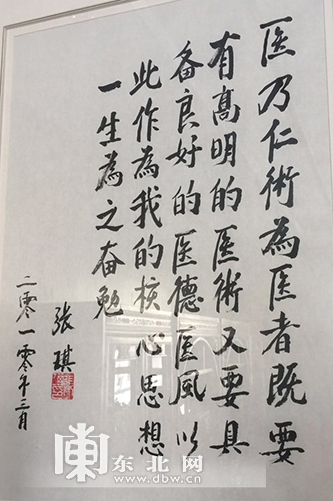 医乃仁術為医者既要
有高明的医術又要具
备良好的医德医風以
此作為我的核心思想
一生為之奋勉
張琪
二零一零年三月
东北网
www.dbw.cn